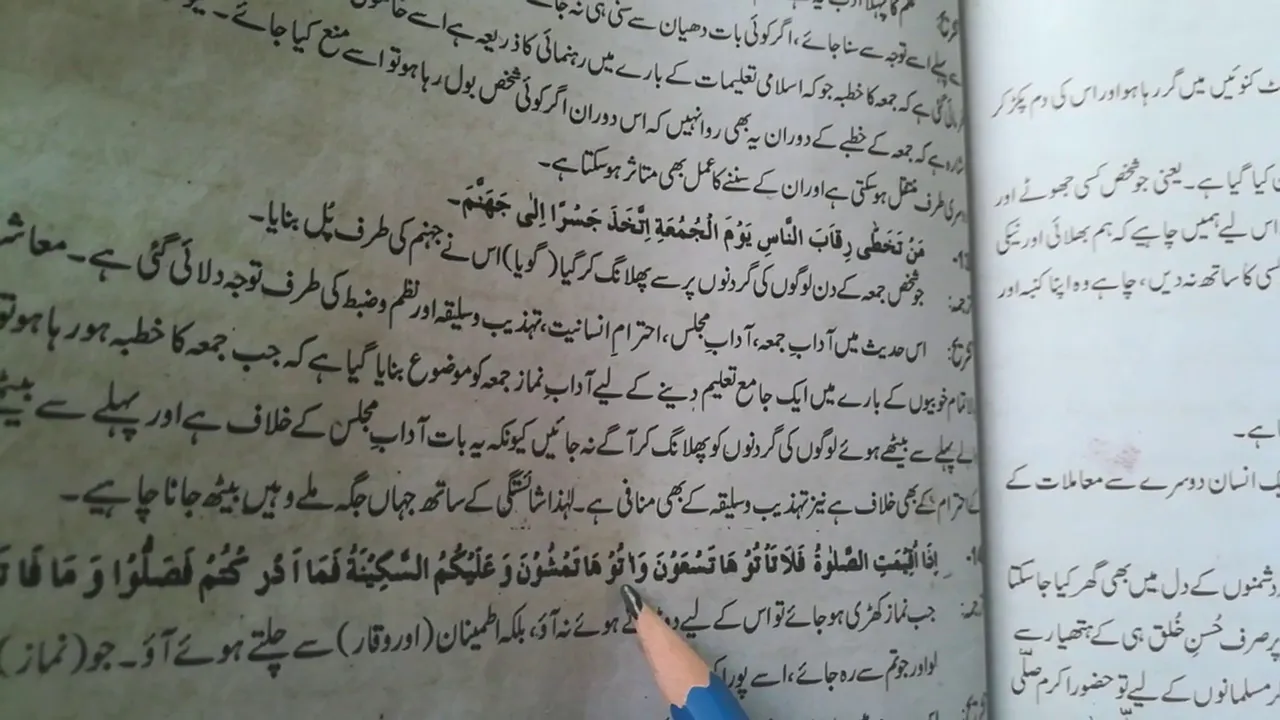 پہلے اسے توجہ سے سنا جائے، اگر کوئی بات دھیان سے سنی ہی نہ جائے
گئی ہے کہ جمعہ کا خطبہ جو کہ اسلامی تعلیمات کے بارے میں رہنمائی کا ذریعہ ہے اسے
ہے کہ جمعہ کے خطبے کے دوران یہ بھی روا نہیں کہ اس دوران اگر کوئی شخص بول رہا ہو تو اسے منع کیا جائے۔
طرف منتقل ہو سکتی ہے اور ان کے سننے کا عمل بھی متاثر ہو سکتا ہے۔
مَنْ تَخَطّٰى رِقَابَ النَّاسِ يَوْمَ الْجُمُعَةِ اِتَّخَذَ جَسْرًا اِلٰى جَهَنَّمَ۔
جو شخص جمعہ کے دن لوگوں کی گردنوں پر سے پھلانگ کر گیا (گویا) اس نے جہنم کی طرف پُل بنایا۔
اس حدیث میں آدابِ جمعہ، آدابِ مجلس، احترامِ انسانیت، تہذیب و سلیقہ اور نظم و ضبط کی طرف توجہ دلائی گئی ہے۔
تمام خوبیوں کے بارے میں ایک جامع تعلیم دینے کے لیے آدابِ نماز جمعہ کو موضوع بنایا گیا ہے کہ جب جمعہ کا خطبہ ہو رہا ہو تو
پہلے سے بیٹھے ہوئے لوگوں کی گردنوں کو پھلانگ کر آگے نہ جائیں کیونکہ یہ بات آدابِ مجلس کے خلاف ہے اور پہلے سے بیٹھے
احترام کے بھی خلاف ہے نیز تہذیب و سلیقہ کے بھی منافی ہے۔ لہٰذا شائستگی کے ساتھ جہاں جگہ ملے وہیں بیٹھ جانا چاہیے۔
اِذَا اُقِيْمَتِ الصَّلٰوةُ فَلَا تَاْتُوْ هَا تَسْعَوْنَ وَاتُوْ هَا تَمْشُوْنَ وَ عَلَيْكُمُ السَّكِيْنَةُ فَمَا اَدْرَ كْتُمْ فَصَلُّوْا وَ مَا فَا
جب نماز کھڑی ہو جائے تو اس کے لیے ہوئے نہ آؤ، بلکہ اطمینان (اور وقار) سے چلتے ہوئے آؤ۔ جو (نماز)
لو اور جو تم سے رہ جائے، اسے پورا
کنوئیں میں گر رہا ہو اور اس کی دم پکڑ کر
کیا گیا ہے۔ یعنی جو شخص کسی جھوٹے اور
اس لیے ہمیں چاہیے کہ ہم بھلائی اور نیکی
کا ساتھ نہ دیں، چاہے وہ اپنا کنبہ اور
ہے۔
انسان دوسرے سے معاملات کے
دشمنوں کے دل میں بھی گھر کیا جا سکتا
پر صرف حُسنِ خُلق ہی کے ہتھیار سے
مسلمانوں کے لیے تو حضور اکرم صلّی